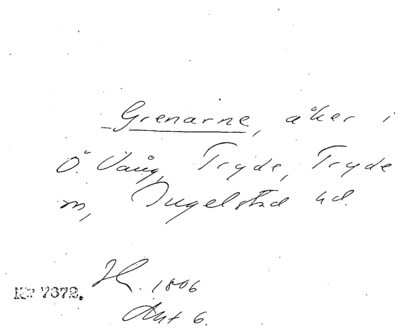 Grenarne, åker i
Ö. Vång, Tryde, Tryde
m, Ingelstad hd.
H. 1806
Akt 6.
KF 7372.